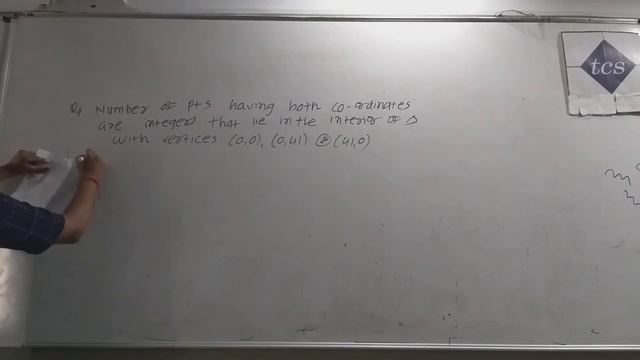 Q. Number of pts having both co-ordinates
are integers that lie in the interior of Δ
with vertices (0,0), (0,41) & (41,0)
tcs